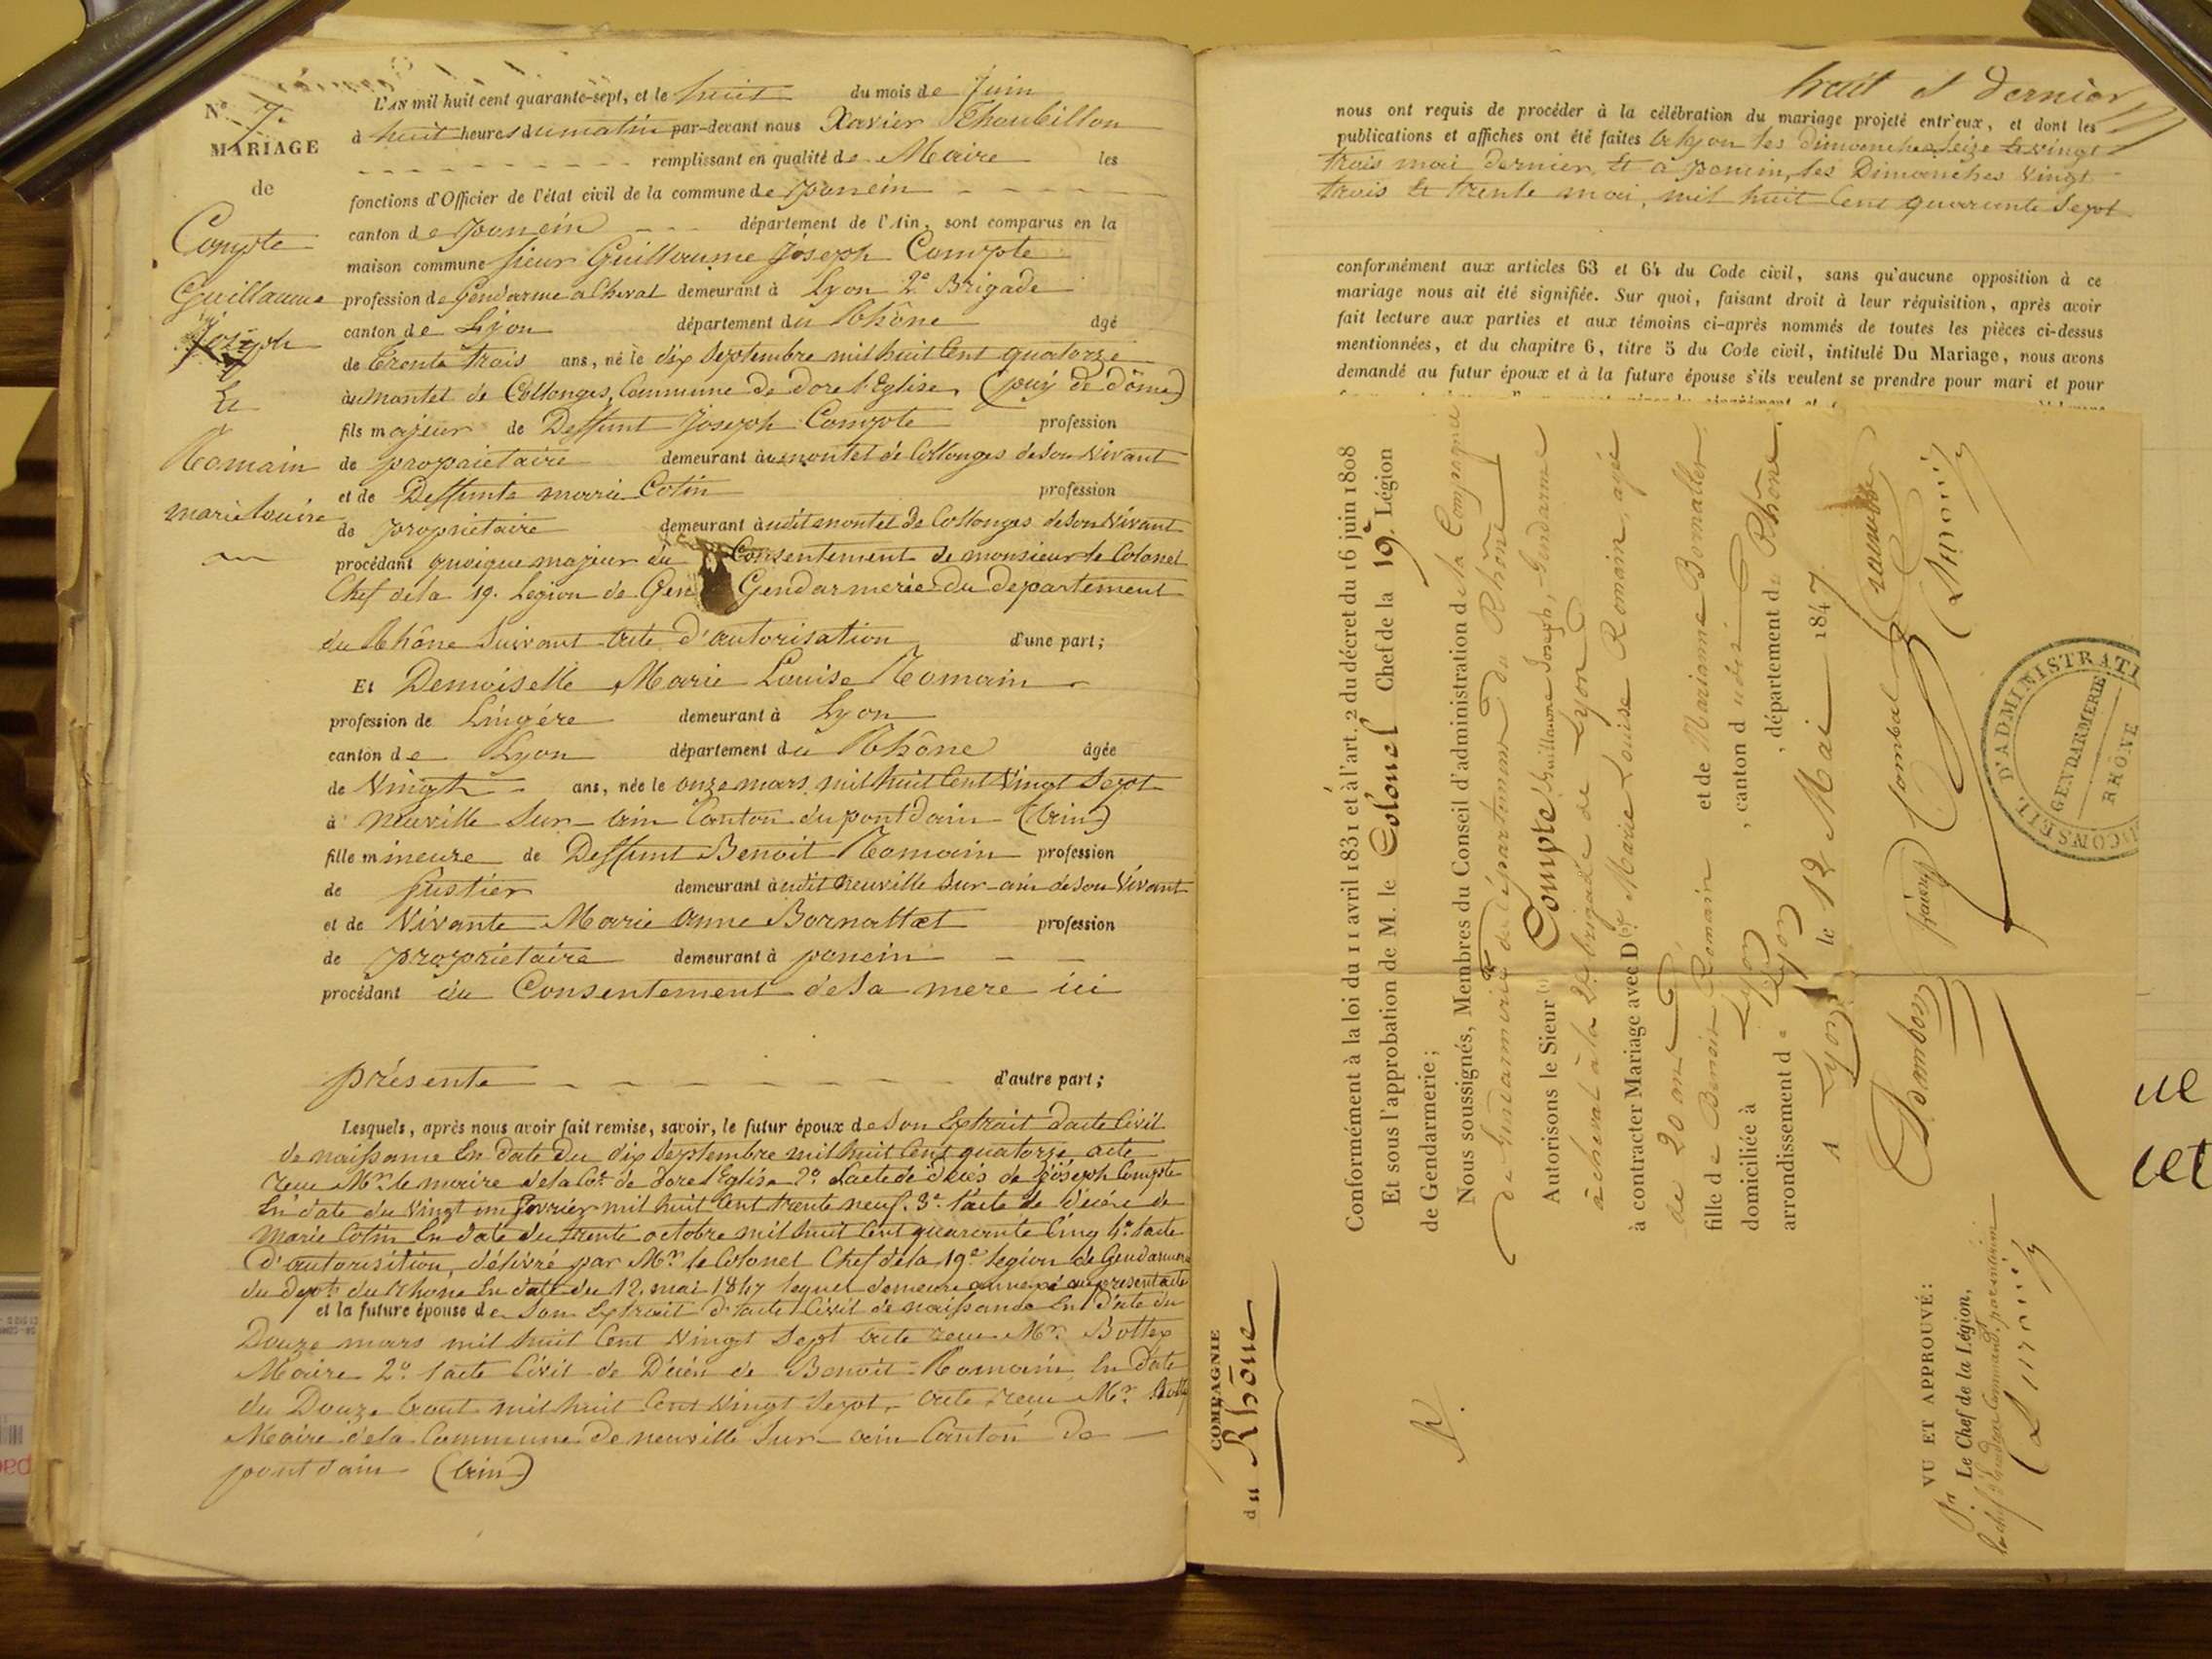 N° 7.
MARIAGE
de
Compte
Guillaume
Joseph
Et
Romain
marie Louise
L'AN mil huit cent quarante-sept, et le huit du mois de Juin
à huit heures du matin par-devant nous Xavier Thoubillon
remplissant en qualité de Maire les
fonctions d'Officier de l'état civil de la commune de poncin
canton de poncin département de l'Ain, sont comparus en la
maison commune sieur Guillaume Joseph Compte
profession de Gendarme a Cheval demeurant à Lyon 2e Brigade
canton de Lyon département du Rhône âgé
de trente trois ans, né le dix Septembre mil huit Cent quatorze
au montel de Collonges, Commune de dore l'Eglise (puy de dôme)
fils majeur de Deffunt Joseph Compte profession
de propriétaire demeurant au montel de Collonges de son vivant
et de Deffunte marie Cotin profession
de propriétaire demeurant audit montel de Collonges de son vivant
procédant quoique majeur du Consentement de monsieur le Colonel
Chef de la 19. Legion de Gen Gendarmerie du departement
du Rhône suivant acte d'autorisation d'une part;
Et Demoiselle Marie Louise Romain
profession de Lingére demeurant à Lyon
canton de Lyon département du Rhône âgée
de Vingt ans, née le onze mars mil huit Cent Vingt Sept
à neuville sur ain Canton du pont dain (ain)
fille mineure de Deffunt Benoit Romain profession
de fustier demeurant audit neuville sur ain de son Vivant
et de Vivante Marie anne Bornattat profession
de propriétaire demeurant à poncin
procédant du Consentement de sa mere ici
présente d'autre part;
Lesquels, après nous avoir fait remise, savoir, le futur époux de son Extrait d'acte Civil
de naissance En date du dix Septembre mil huit Cent quatorze acte
reçu Mr. le maire de la Cne de dore l'Eglise 2° l'acte de décés de Joseph Compte
En date du Vingt un fevrier mil huit Cent trente neuf. 3° l'acte de décés de
Marie Cotin En date du trente octobre mil huit Cent quarante Cinq 4° l'acte
d'autorisation, délivré par Mr. le Colonel Chef de la 19e legion de Gendarmerie
du dept. du Rhone En date du 12. mai 1847 lequel demeure annexé au present acte
et la future épouse de Son Extrait d'acte Civil de naissance En date du
Douze mars mil huit Cent Vingt Sept acte reçu Mr. Bottex
Maire 2° l'acte Civil de Décés de Benoit Romain, En date
du Douze aout mil huit Cent Vingt Sept, acte reçu Mr.
Maire de la Commune de neuville Sur ain Canton de
pont dain (ain)
huit et dernier
nous ont requis de procéder à la célébration du mariage projeté entr'eux, et dont les
publications et affiches ont été faites a lyon les dimanches seize et vingt
trois mai dernier, Et a poncin, les Dimanches Vingt
trois Et trente mai, mil huit Cent quarante Sept
conformément aux articles 63 et 64 du Code civil, sans qu'aucune opposition à ce
mariage nous ait été signifiée. Sur quoi, faisant droit à leur réquisition, après avoir
fait lecture aux parties et aux témoins ci-après nommés de toutes les pièces ci-dessus
mentionnées, et du chapitre 6, titre 5 du Code civil, intitulé Du Mariage, nous avons
demandé au futur époux et à la future épouse s'ils veulent se prendre pour mari et pour
COMPAGNIE
du Rhône
Conformément à la loi du 11 avril 1831 et à l'art. 2 du décret du 16 juin 1808
Et sous l'approbation de M. le Colonel Chef de la 19e. Légion
de Gendarmerie;
Nous soussignés, Membres du Conseil d'administration de la Compagnie
de Gendarmerie du département du Rhône
Autorisons le Sieur Compte Guillaume Joseph, Gendarme
à cheval à la 2e brigade de Lyon
à contracter Mariage avec Dlle Marie Louise Romain, agée
de 20 ans
fille de Benoit Romain et de Marianne Bornallet
domiciliée à Lyon, canton dudit
arrondissement de Lyon, département du Rhône.
A Lyon le 12 Mai 1847.
VU ET APPROUVÉ:
Le Chef de la Légion,
CONSEIL D'ADMINISTRATI
GENDARMERIE
RHÔNE